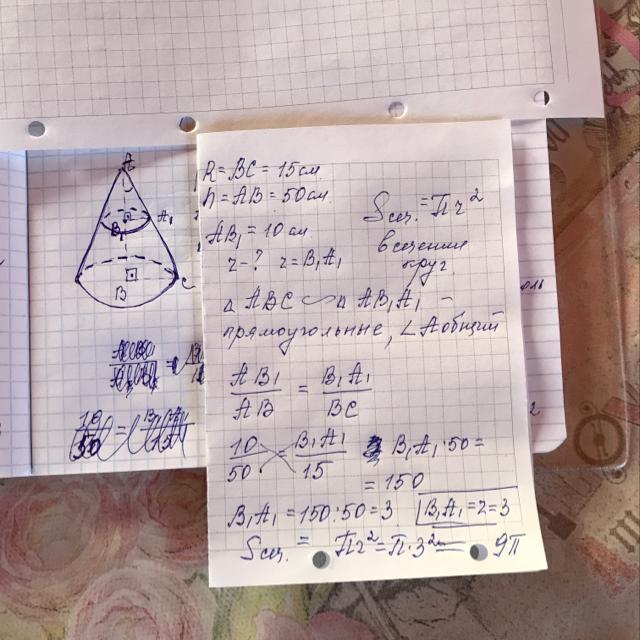 A
A₁
B₁
B
C
R = BC = 15 см
h = AB = 50 см.
AB₁ = 10 см
r - ? r = B₁A₁
Sсеч. = Пr²
в сечении
круг.
△ ABC ∽ △ AB₁A₁ –
прямоугольные, ∠A общий
AB₁/AB = B₁A₁/BC
10/50 = B₁A₁/15 B₁A₁·50 =
= 150
B₁A₁ = 150:50 = 3 B₁A₁ = r = 3
Sсеч. = Пr² = П·3² = 9П
10/50 =
оль
2